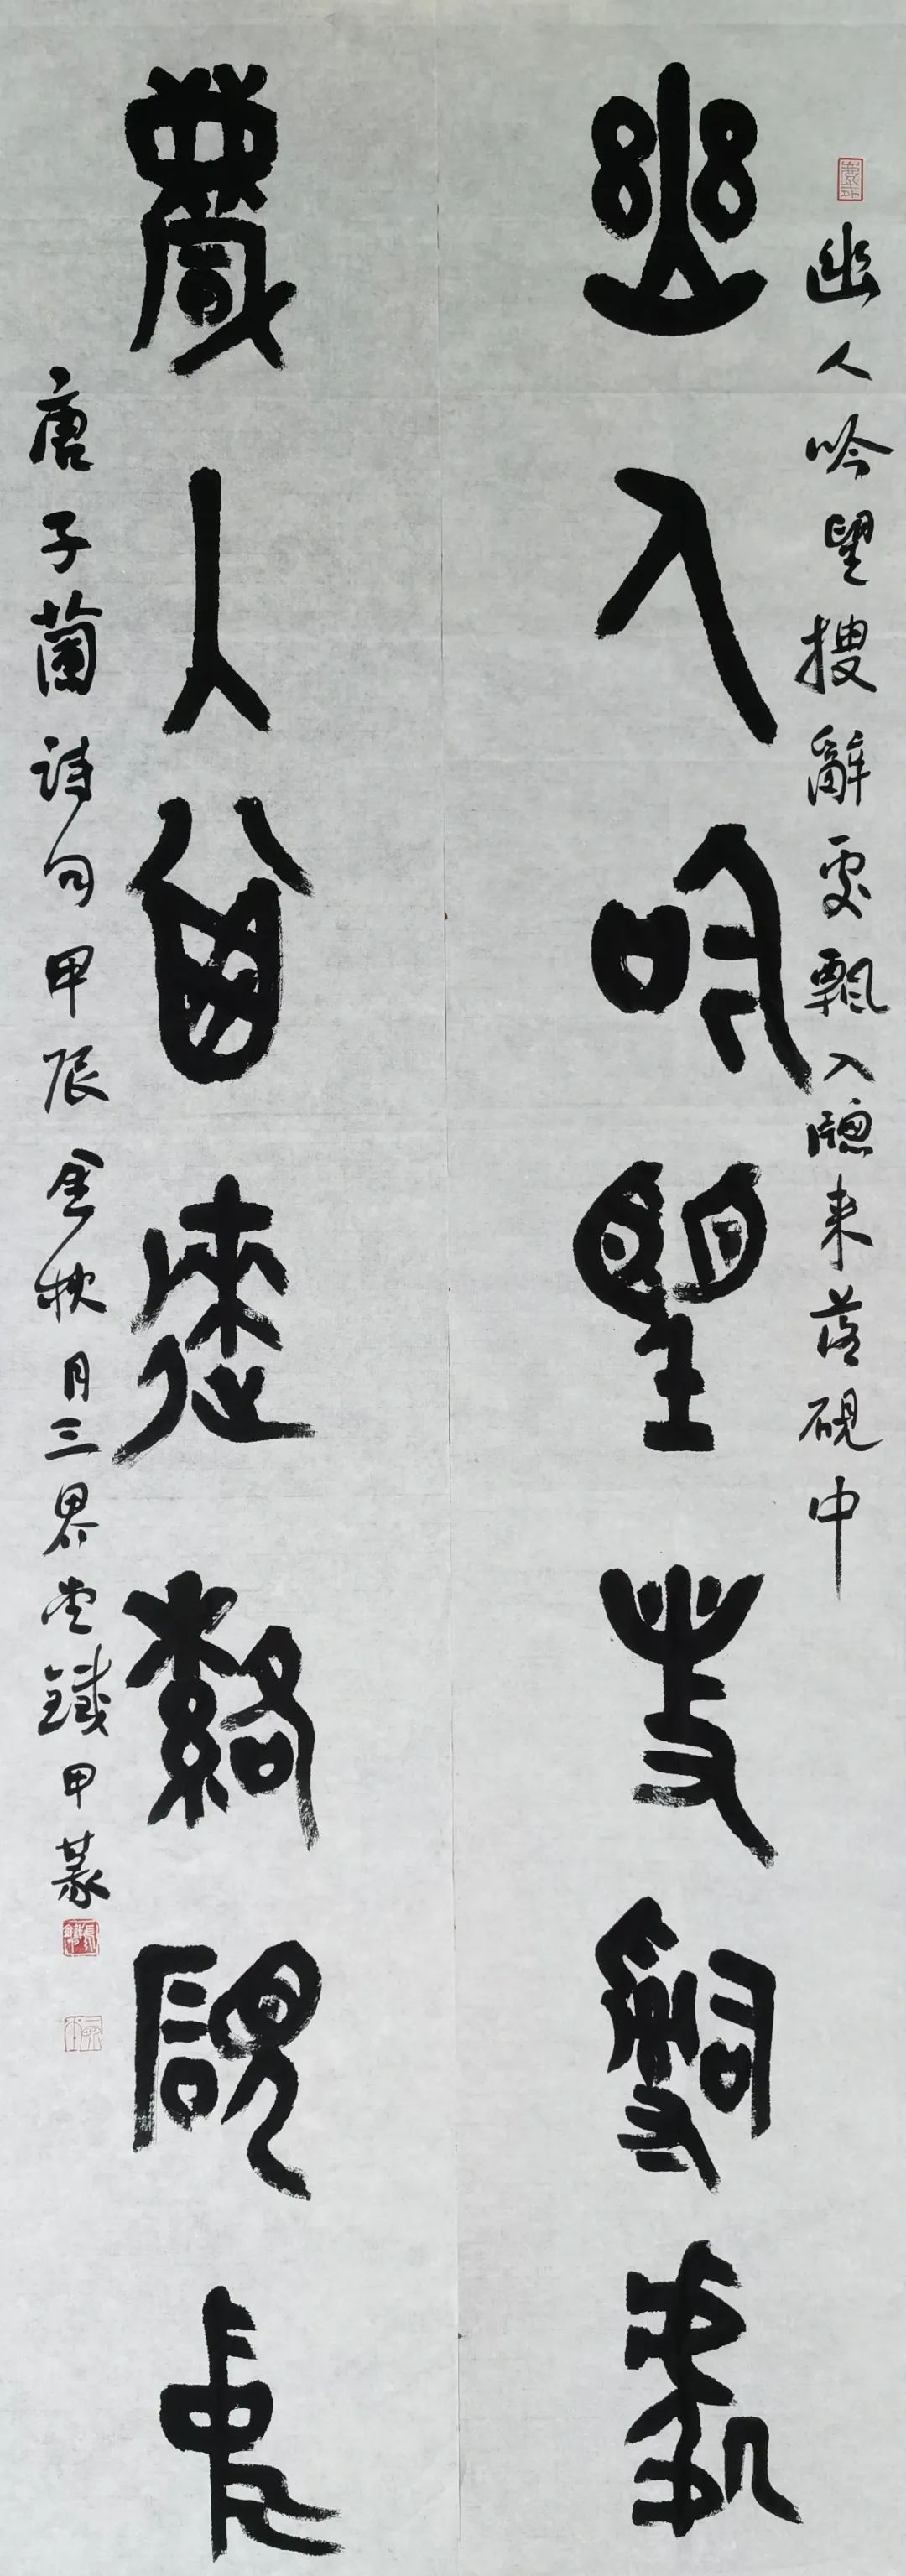 幽人吟望搜辭處飄入牕来落硯中
幽人吟望搜辭處
飄入牕来落硯中
唐子蘭詩句甲辰金秋月三界堂鐵甲篆